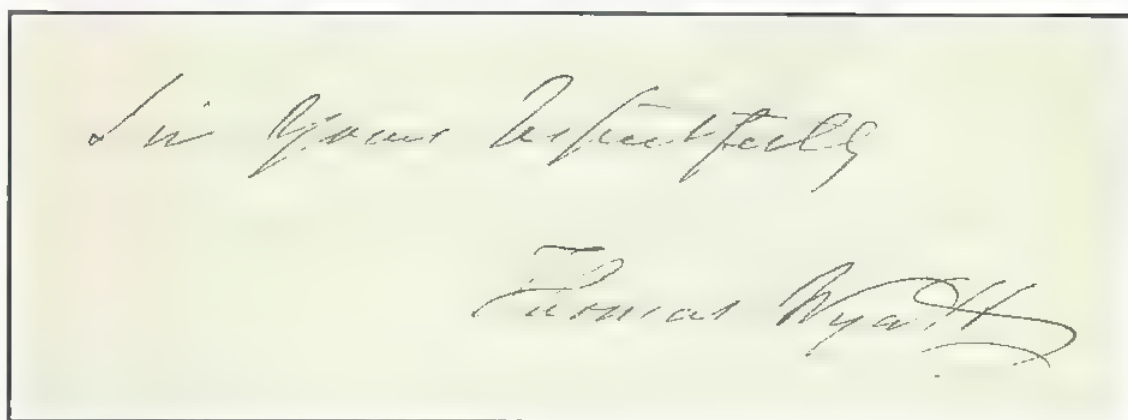 Sir Yours Respectfully
Thomas Wyatt